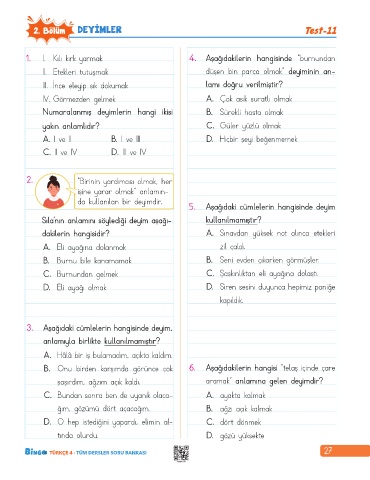 2. Bölüm DEYİMLER
Test-11
1. I. Kılı kırk yarmak
II. Etekleri tutuşmak
III. İnce eleyip sık dokumak
IV. Görmezden gelmek
Numaralanmış deyimlerin hangi ikisi
yakın anlamlıdır?
A. I ve II B. I ve III
C. II ve IV D. III ve IV
2. "Birinin yaraması olmak, her
işine yarar olmak" anlamın-
da kullanılan bir deyimdir.
Sıla'nın anlamını söylediği deyim aşağı-
dakilerin hangisidir?
A. Eli ayağına dolanmak
B. Burnu bile kanamamak
C. Burnundan gelmek
D. Eli ayağı olmak
3. Aşağıdaki cümlelerin hangisinde deyim,
anlamıyla birlikte kullanılmamıştır?
A. Hâlâ bir iş bulamadım, açıkta kaldım.
B. Onu birden karşımda görünce çok
şaşırdım, ağzım açık kaldı.
C. Bundan sonra ben de uyanık olaca-
ğım, gözümü dört açacağım.
D. O hep istediğini yapardı, elimin al-
tında olurdu.
4. Aşağıdakilerin hangisinde "burnundan
düşen bin parça olmak" deyiminin an-
lamı doğru verilmiştir?
A. Çok asık suratlı olmak
B. Sürekli hasta olmak
C. Güler yüzlü olmak
D. Hiçbir şeyi beğenmemek
5. Aşağıdaki cümlelerin hangisinde deyim
kullanılmamıştır?
A. Sınavdan yüksek not alınca etekleri
zil çaldı.
B. Seni evden çıkarken görmüşler.
C. Şaşkınlıktan eli ayağına dolaştı.
D. Siren sesini duyunca hepimiz paniğe
kapıldık.
6. Aşağıdakilerin hangisi "telaş içinde çare
aramak" anlamına gelen deyimdir?
A. ayakta kalmak
B. ağzı açık kalmak
C. dört dönmek
D. gözü yüksekte
BİNGO TÜRKÇE 4 - TÜM DERSLER SORU BANKASI
27